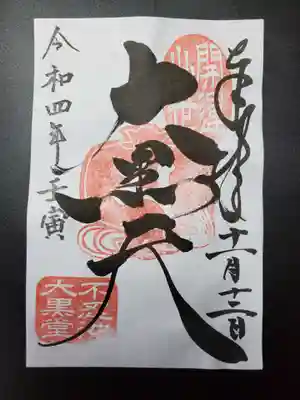 奉拝
十一月十二日
大黒天
令和四年壬寅
不忍池
大黒堂